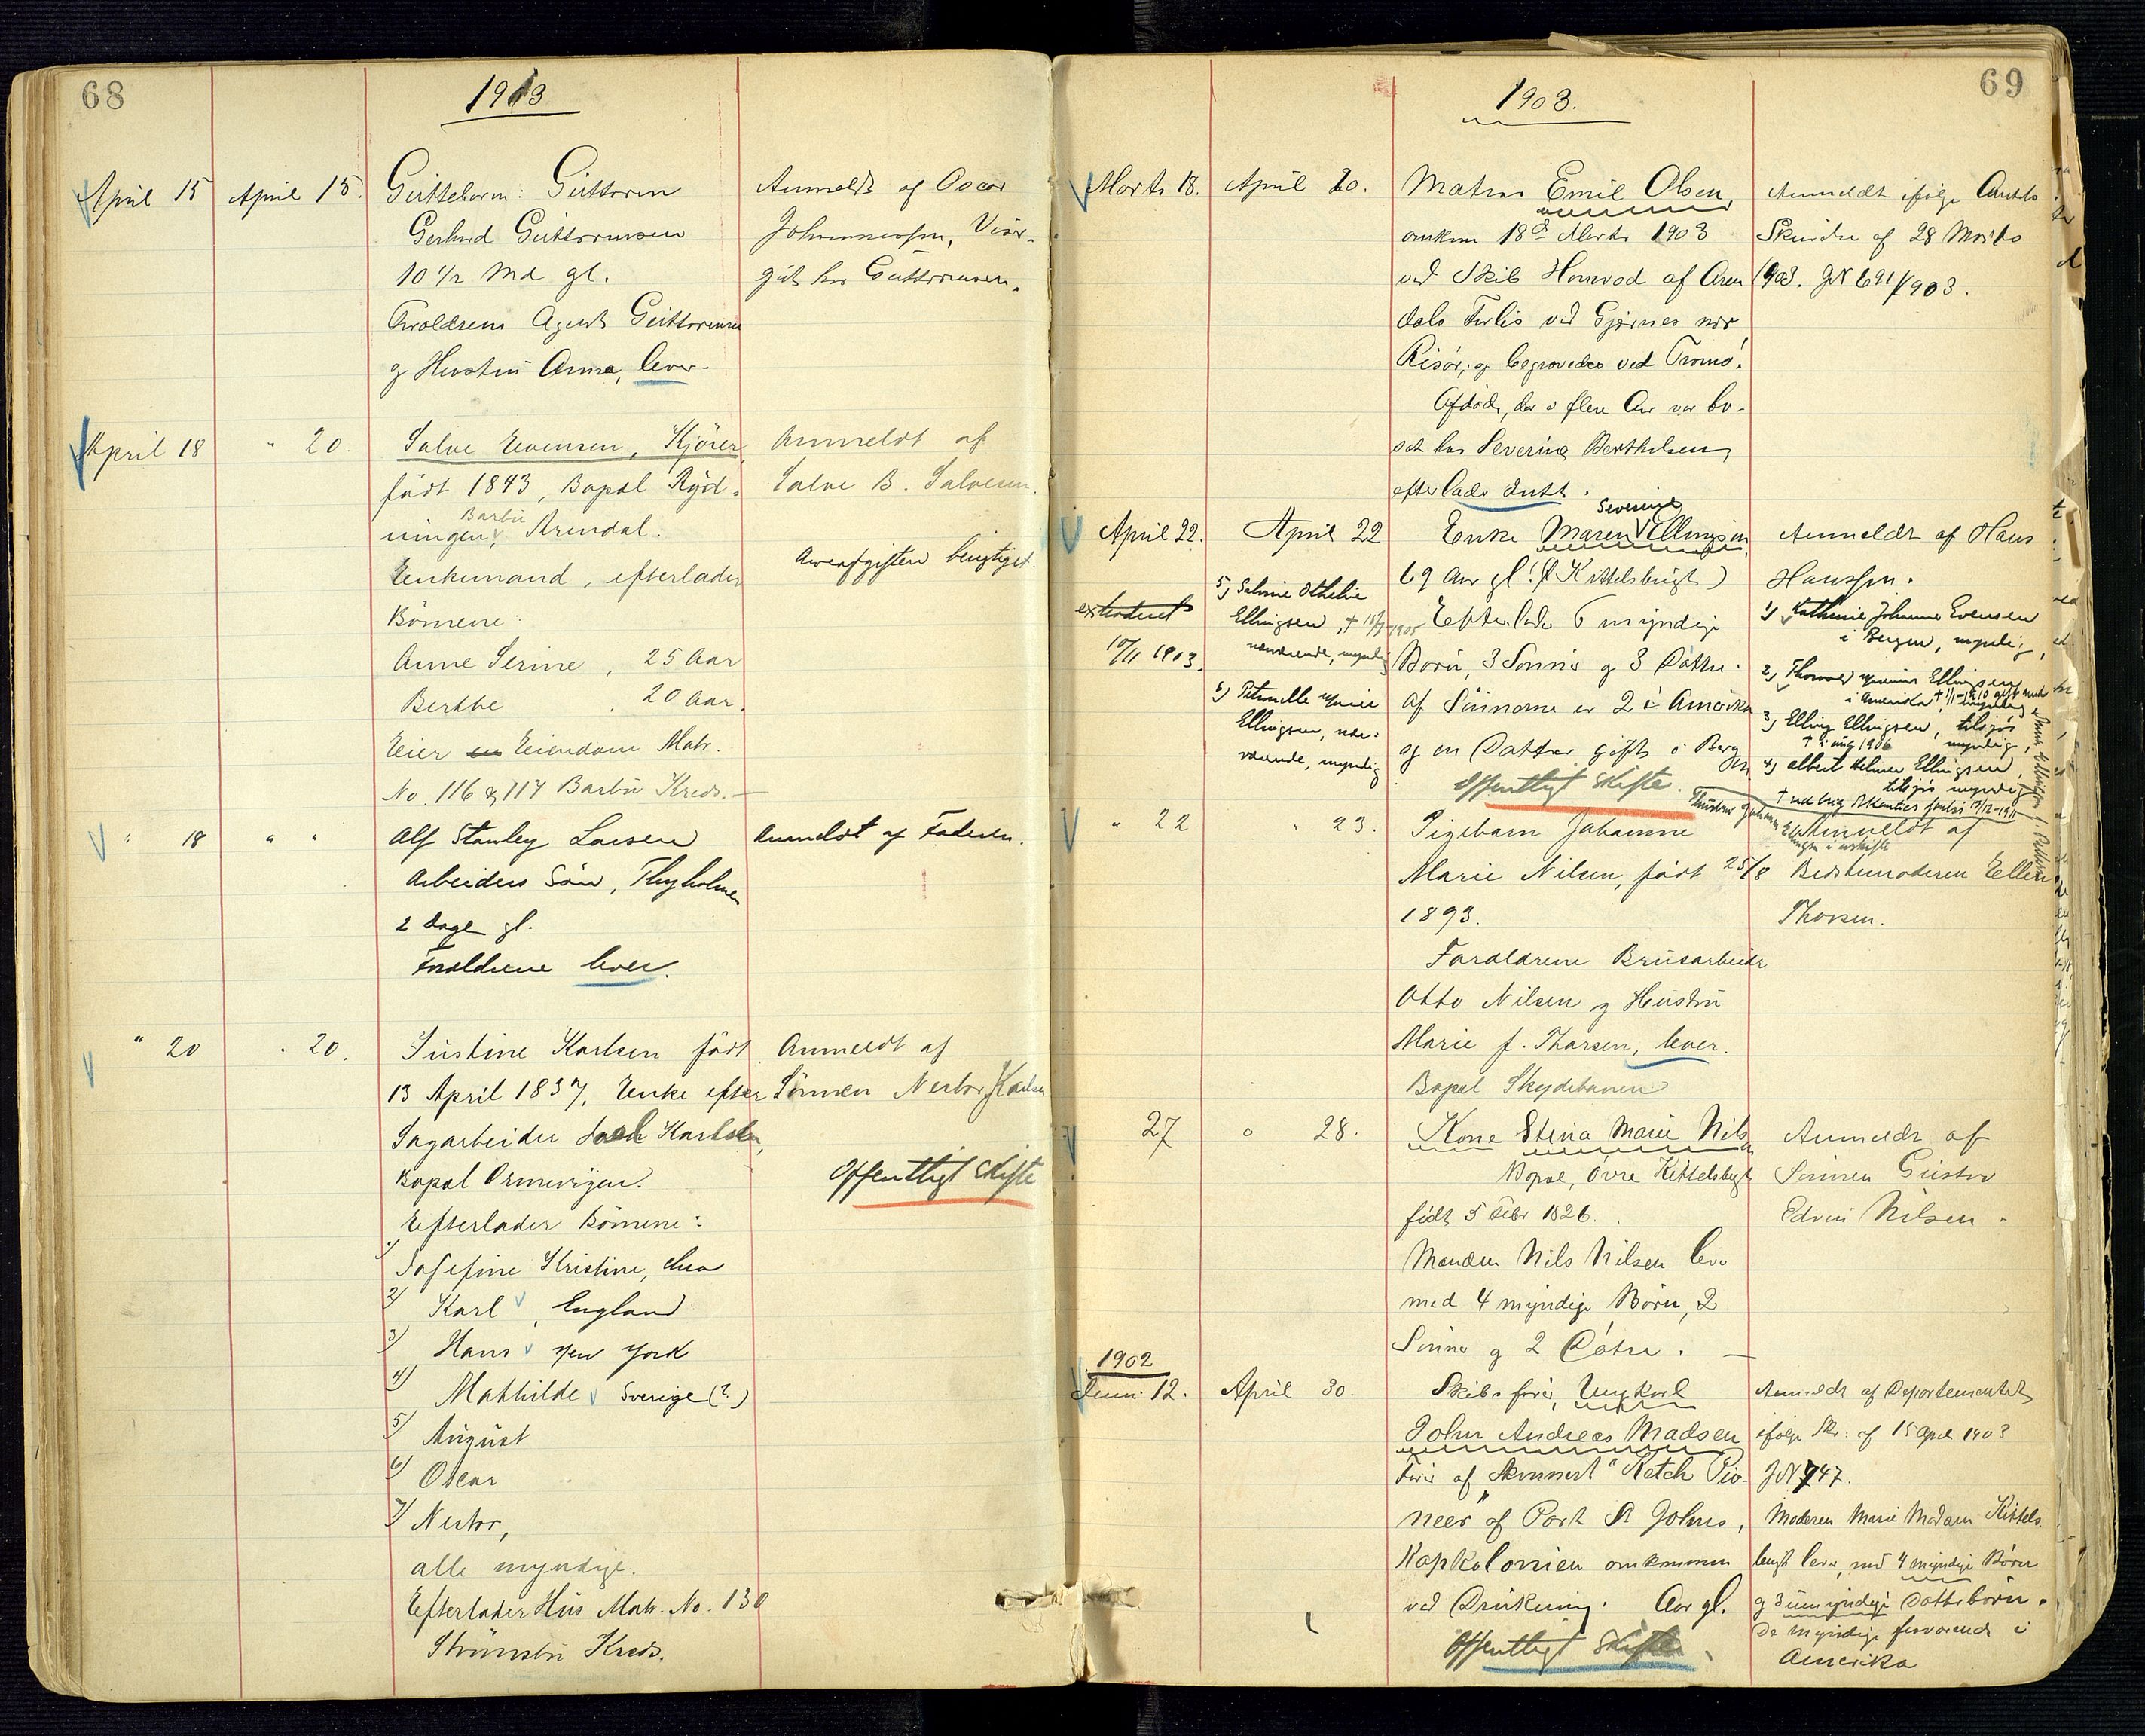 68
1903
April 15
April 15.
Guttebarn: Guttorm
Gerhard Guttormsen
10 1/2 Md gl.
Forældrene Agent Guttormsen
og Hustru Anna, lever.
Anmeldt af Oscar
Johannessen, Visergut hos Guttormsen.
April 18
" 20.
Salve Evensen, Kjörer
födt 1843, Bopæl Rydningen, Barbu Arendal.
Enkemand, efterlader
Börnene:
Anne Serine, 25 Aar
Berthe 20 Aar.
Eier en Eiendom Matr.
No. 116 & 117 Barbu Kreds.
Anmeldt af
Salve B. Salvesen.
Arveafgiften berigtiget.
" 18
" "
Alf Stanley Larsen
Arbeiders Sön, Thyholmen
2 Dage gl.
Forældrene lever.
Anmeldt af Faderen.
" 20
" 20.
Justine Karlsen födt
13 April 1837, Enke efter
Sagarbeider Karlsen,
Bopæl Ormevigen.
Efterlader Börnene:
1) Josefine Kristine,
2) Karl, England
3) Hans New York
4) Mathilde Sverige (?)
5) August
6) Oscar
7) Nestor,
alle myndige.
Efterlader Hus Matr. No. 130
Strömsbu Kreds.
Anmeldt af
Sönnen Nestor Karlsen
Offentligt Skifte
69
1903.
Marts 18.
April 20.
Matros Emil Olsen,
omkom 18de Marts 1903
ved Skib Homvod af Arendals Forlis ved Gjernes nær
Risör, og begravedes ved Tromö.
Afdöde, der i flere Aar var bosat hos Severine Berthelsen,
efterlader Intet.
Anmeldt ifölge Amtets
Skrivelse af 28 Marts
1903. JN 691/1903.
April 22.
April 22
Enke Maren Severine Ellingsen,
69 Aar gl. (Kittelsbugt)
Efterlader 6 myndige
Börn, 3 Sönner og 3 Döttre.
af Sönnerne er 2 i Amerika
og en Datter gift i Bergen
Offentligt Skifte.
extraderet
10/11 1903.
5) Salvine Othelie
Ellingsen, † 1905
nærværende, myndig
6) Petronelle Marie
Ellingsen, nærværende, myndig
Anmeldt af Hans
Hanssen.
1) Kathrine Johanne Evensen
i Bergen, myndig,
2) Thorvald Ellingsen
i Amerika, myndig
3) Elling Ellingsen, tilsjös
† 2 aug 1906 myndig,
4) Albert Helmer Ellingsen,
tilsjös myndig
" 22
" 23.
Pigebarn Johanne
Marie Nilsen, födt 25/8
1893.
Forældrene Brusarbeider
Otto Nilsen og Hustru
Marie f. Thorsen, lever.
Bopæl Skydebanen
Anmeldt af
Bedstemoderen Ellen
Thorsen.
27
" 28.
Kone Stina Marie Nilsen
Bopæl, Övre Kittelsbugt
födt 5 Febr 1826.
Manden Nils Nilsen lever
med 4 myndige Börn, 2
Sönner og 2 Dötre.
Anmeldt af
Sönnen Gustav
Edvin Nilsen.
1902
Juni 12.
April 30.
Skibsförer, Ungkarl
John Andreas Madsen
Förer af Skonnert "Ketch Pioneer" af Port St Johns,
Kapkolonien omkommen
ved Drukning. Aar gl.
Offentligt Skifte
Anmeldt af Departementet
ifölge Skr: af 15 April 1903
JN 747.
Moderen Marie Madsen Kittelsbugt lever, med 4 myndige Börn
og 3 umyndige Datterbörn.
De myndige fraværende i
Amerika